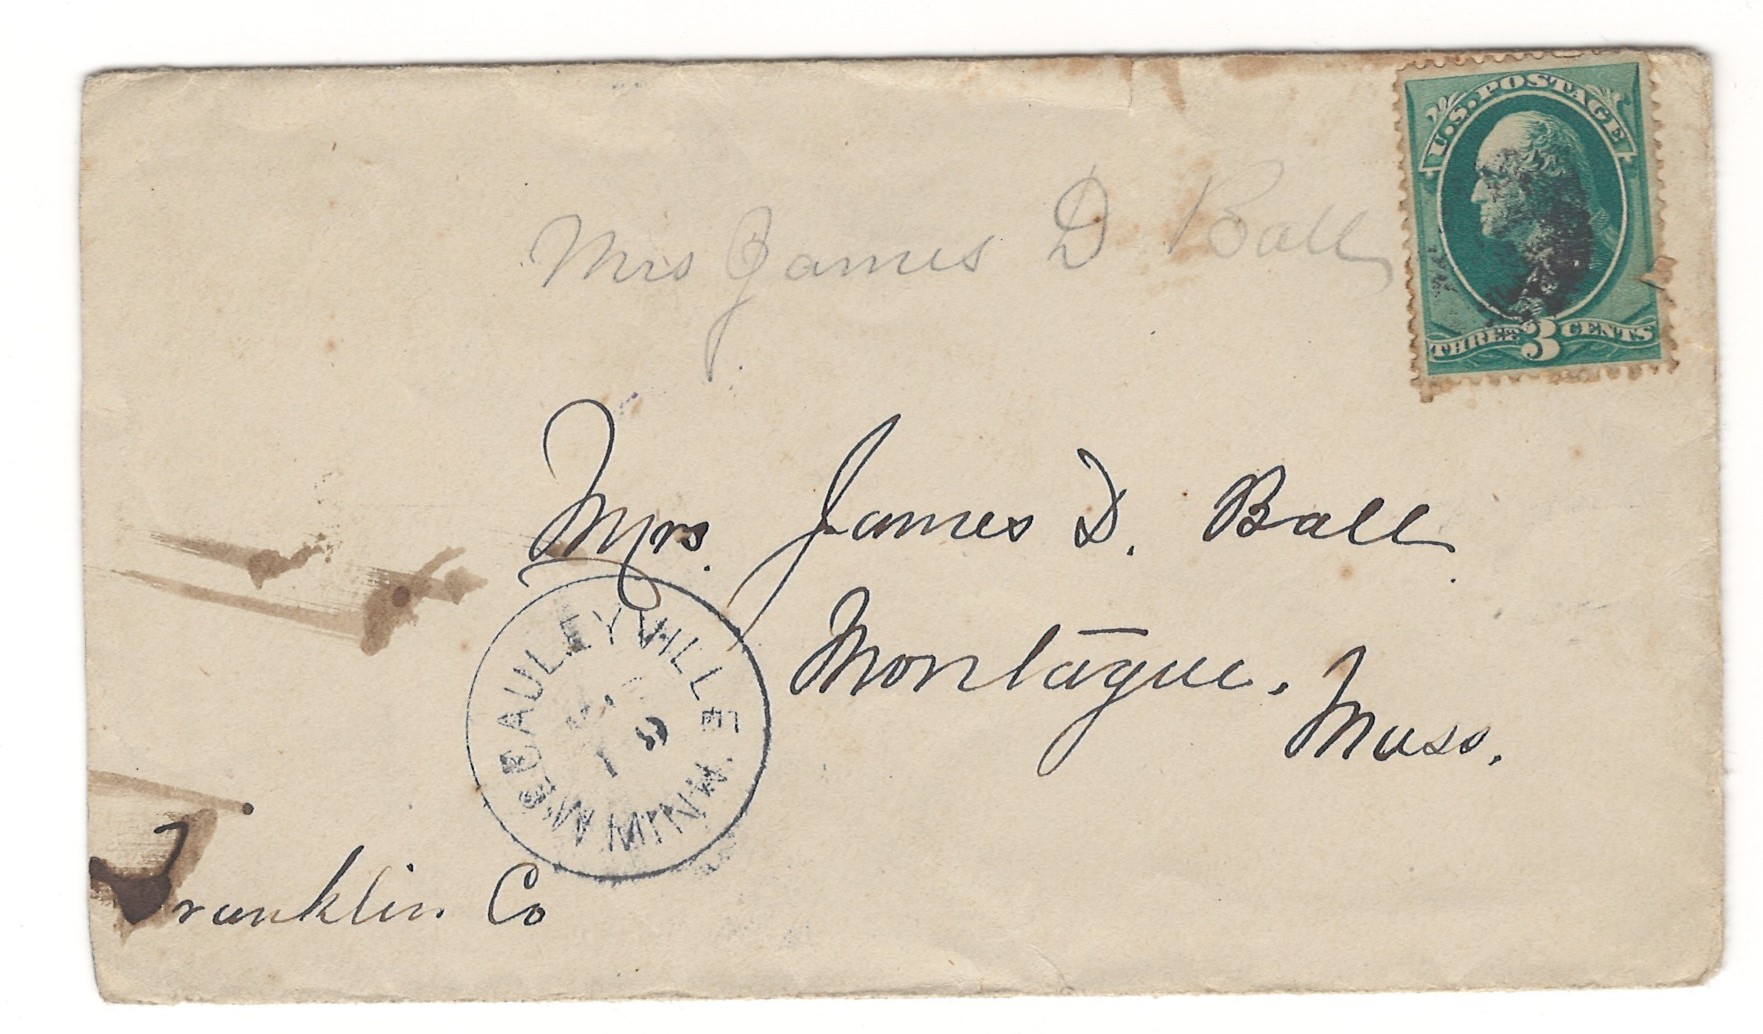 U.S. POSTAGE
THREE 3 CENTS
Mrs James D Ball
Mrs. James D. Ball
Montague.
Mass.
McCAULEYVILLE
MINN.
Franklin Co